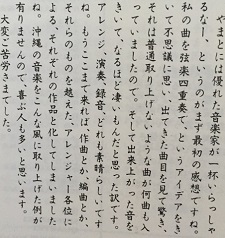 やまとには優れた音楽家が一杯いらっしゃ
るなー、というのがまず最初の感想ですね。
私の曲を弦楽四重奏で、というアイデアをき
いて不思議に思い、出てきた曲目を見て驚き、
それは普通取り上げないような曲が何曲も入
っていましたので。そして出来上がった音を
きいて、なるほど凄いもんだと思った訳です。
アレンジ、演奏、録音、どれも素晴らしいです
ね。もうここまで来れば、作曲とか、編曲とか、
それらのものを越えた、アレンジャー各位に
よる、それぞれの作品と化してしまいました
ね。沖縄の音楽をこんな風に取り上げた例が
有りませんので、喜ぶ人も多いと思います。
大変ご苦労さまでした。